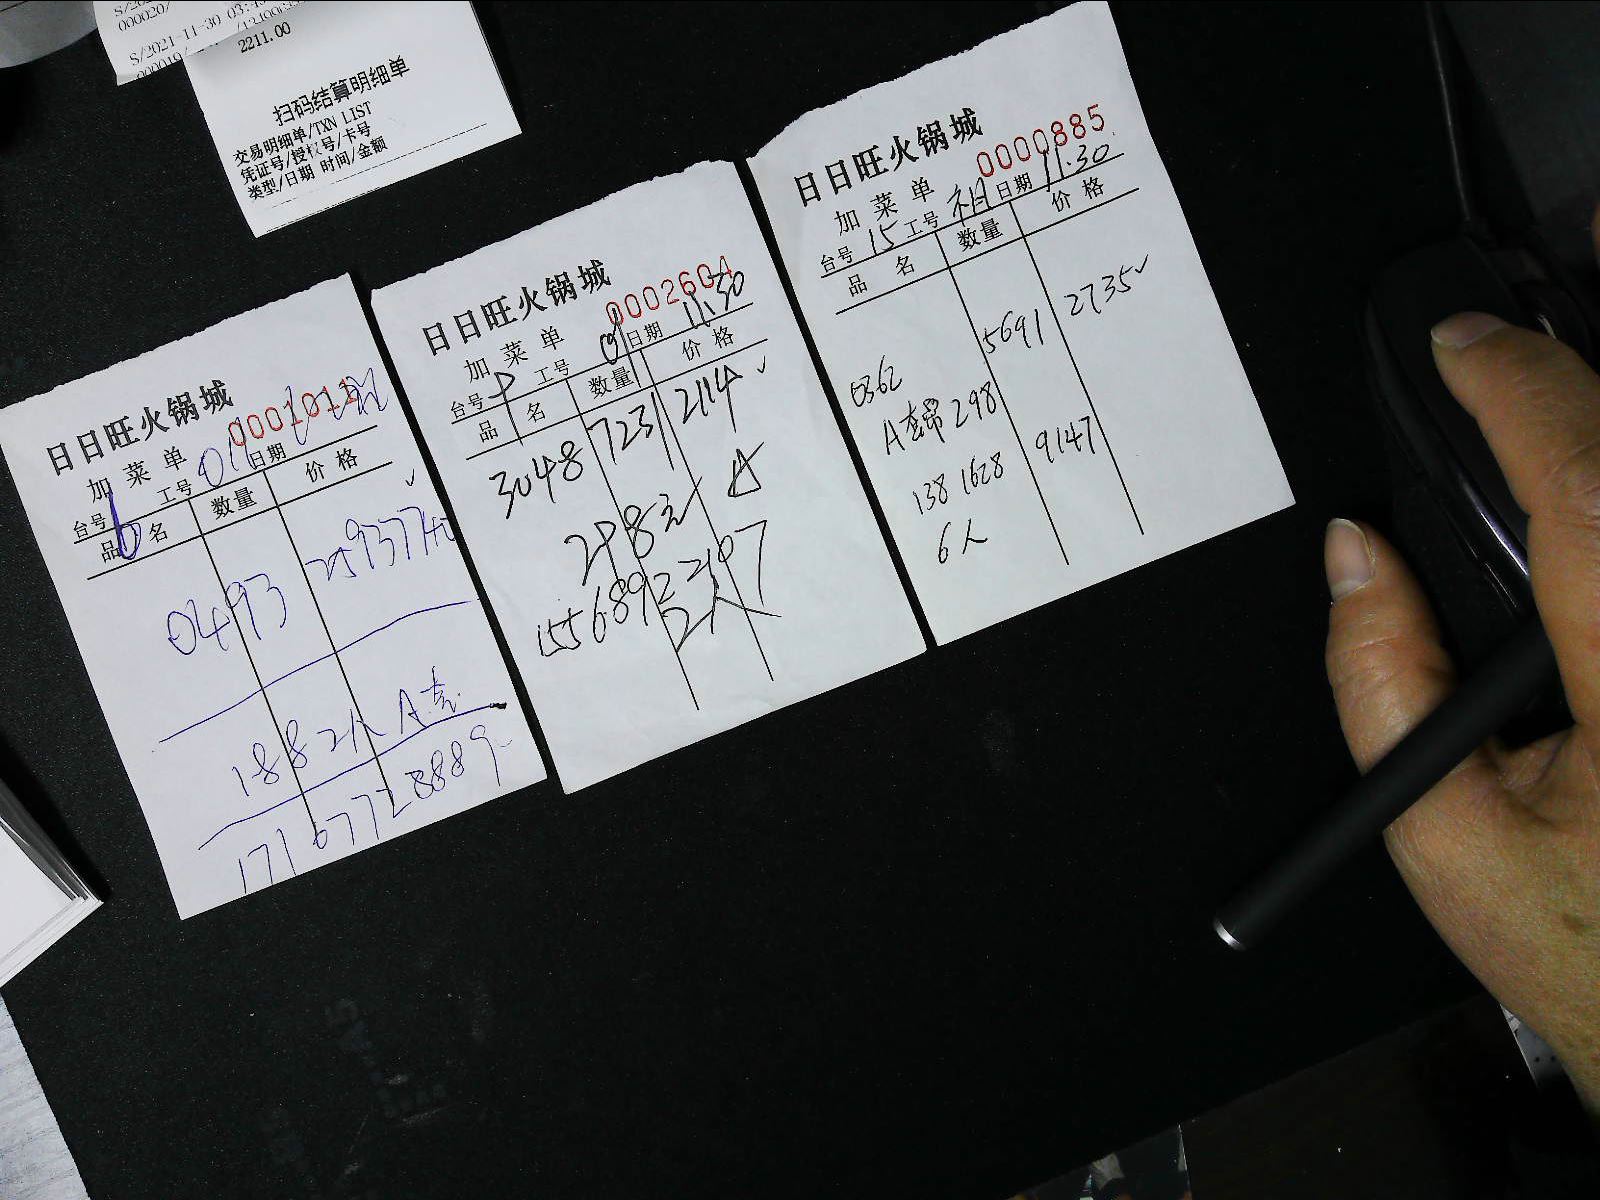 S/2021-11-30 03:45
000020/
000019/
2211.00
扫码结算明细单
交易明细单/TXN LIST
凭证号/授权号/卡号
类型/日期 时间/金额
日日旺火锅城
0001011
加菜单
台号 6 工号 01 日期
品名 数量 价格
0493
188 2人 A套
日日旺火锅城
0002604
加菜单
台号 工号 01 日期 11.30
品名 数量 价格
3048 7231 2114 ✓
298元 A
15568922197
2人
日日旺火锅城
0000885
加菜单
台号 15 工号 日期 11.30
品名 数量 价格
0362 5691 2735 ✓
A套带 298
138 1628 9147
6人